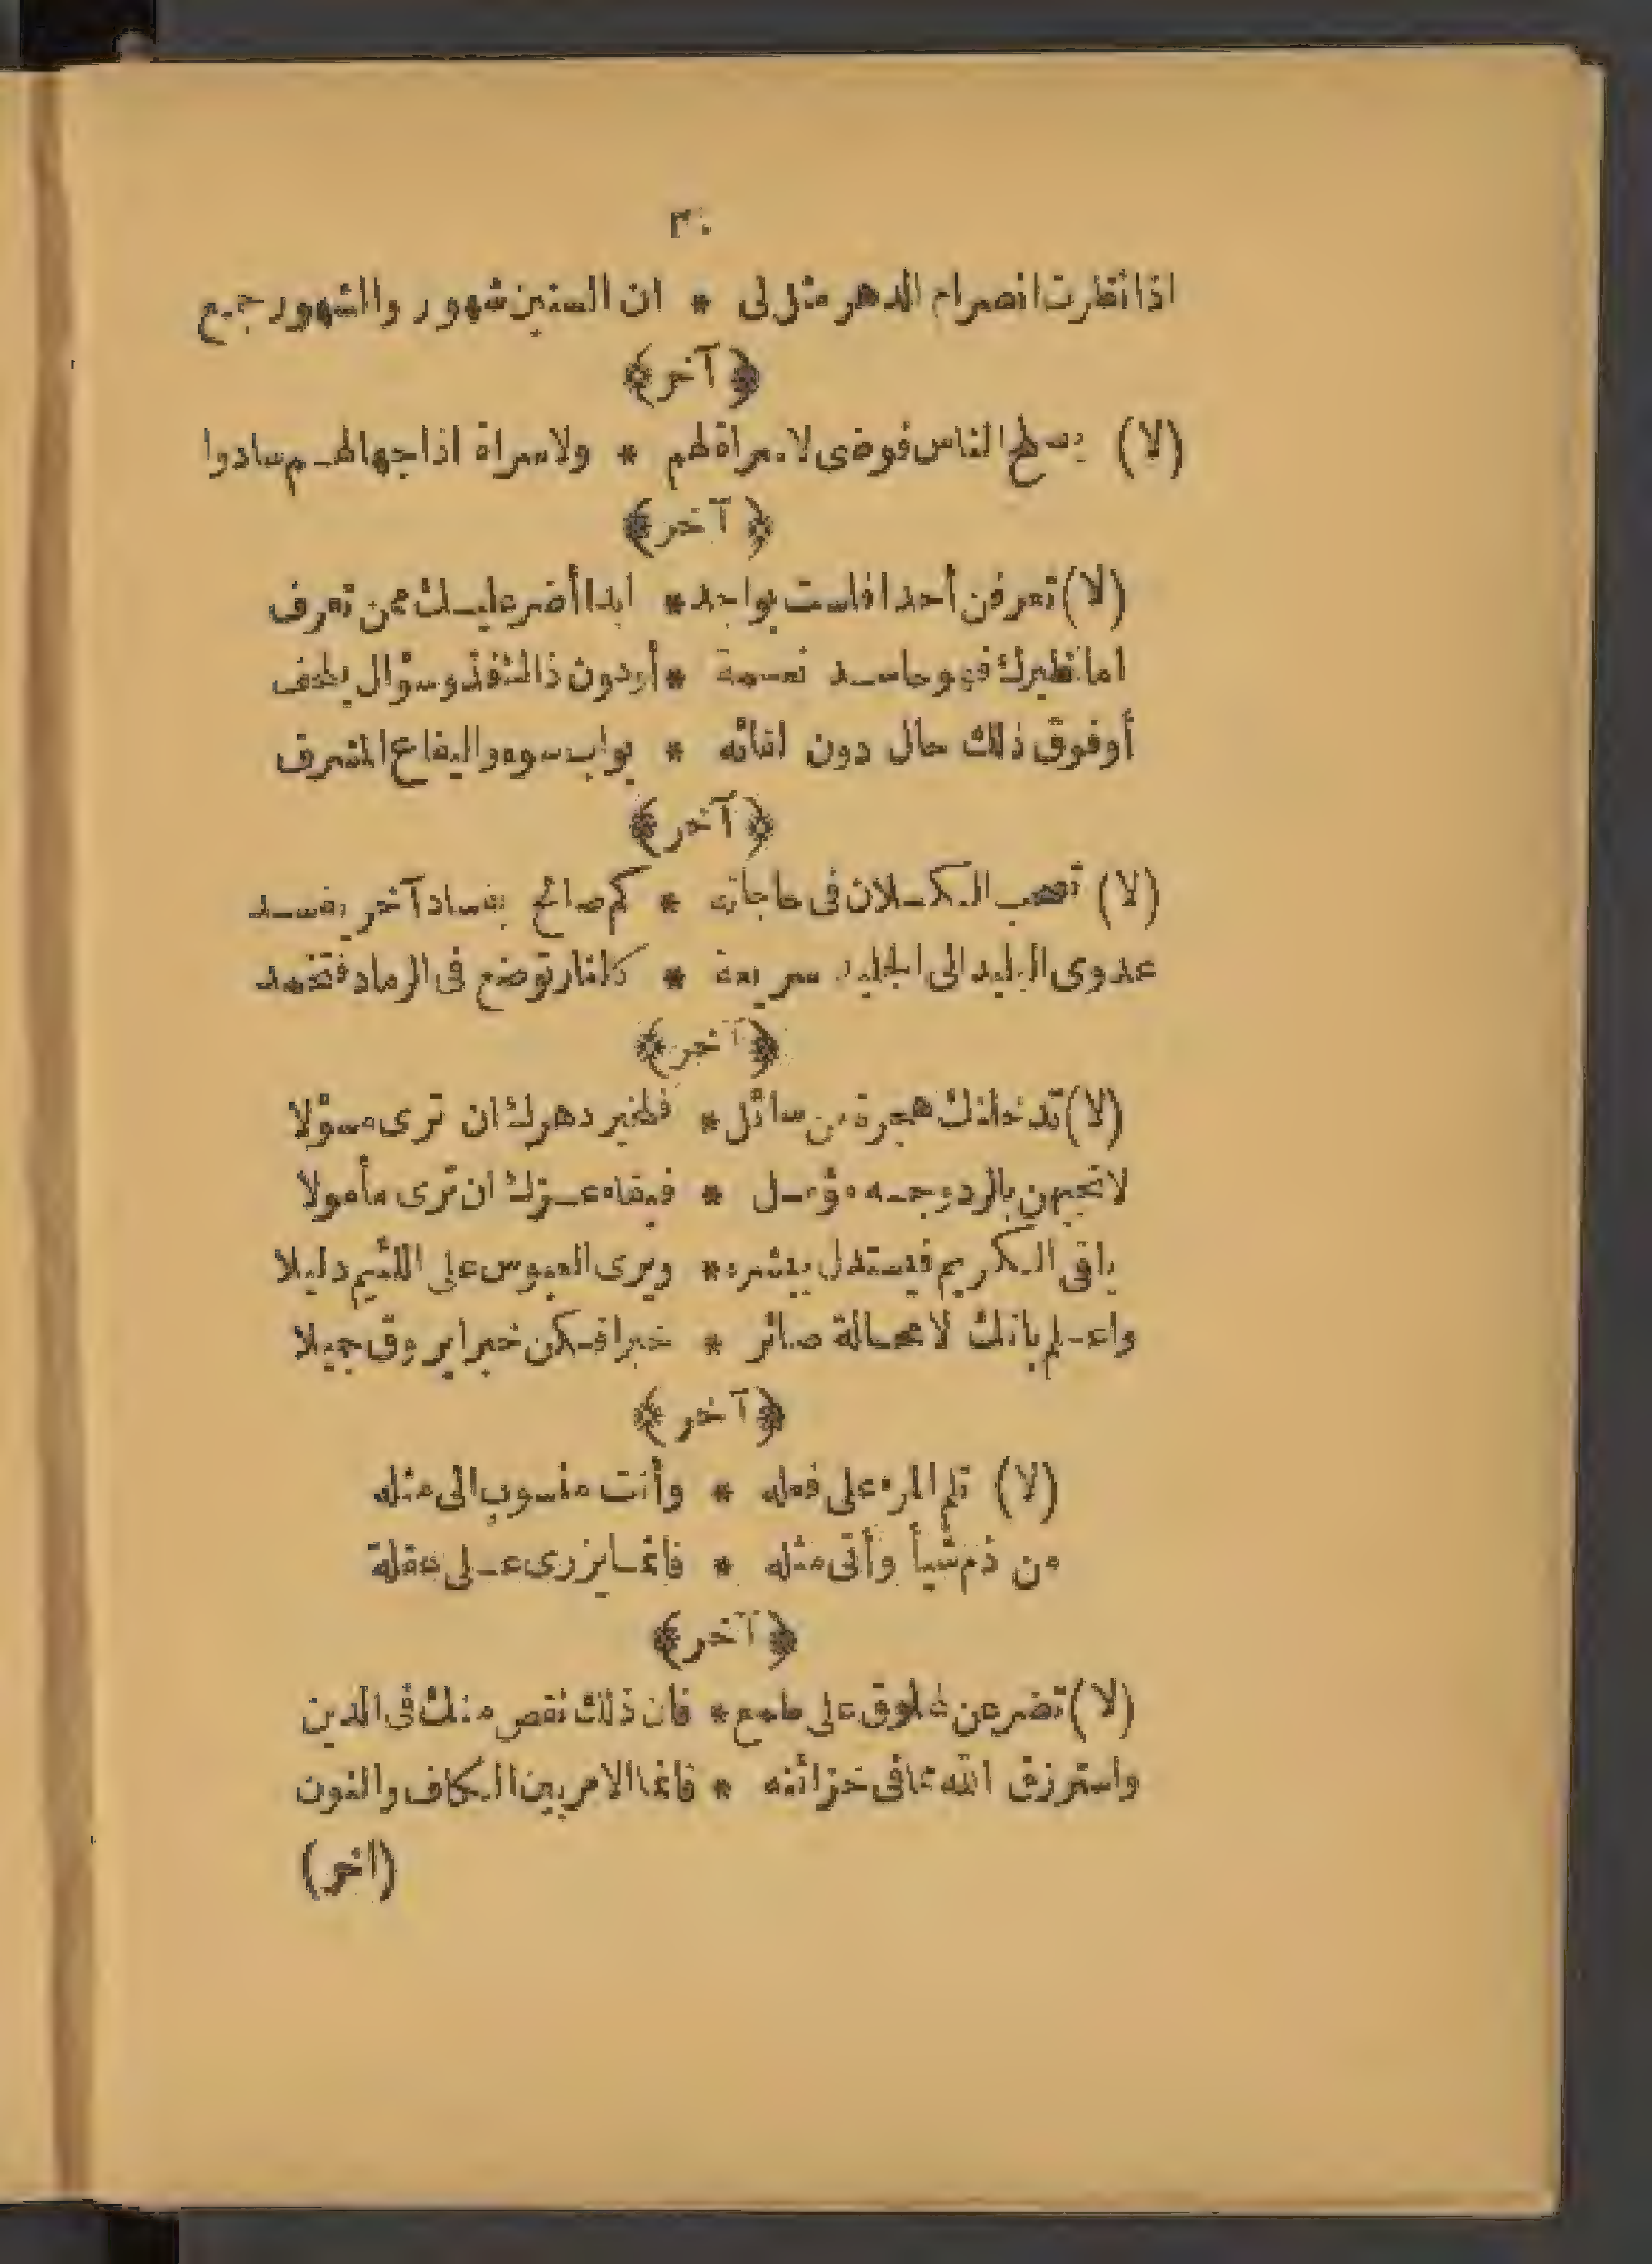 ٣٠
اذا نظرت انصرام الدهر مثل لى * ان السنين شهور والشهور جمع
﴿آخر﴾
(لا) يصلح الناس فوضى لا سراة لهم * ولا سراة اذا جهالهم سادوا
﴿آخر﴾
(لا) تعرفن أحدا فلست بواجد * ابدا أضر عليك ممن تعرف
اما نظيرك فهو حاسد نعمة * أو دون ذالك فذو سؤال يلحف
أو فوق ذلك حال دون لقائه * بواب سوء واليفاع المشرف
﴿آخر﴾
(لا) تصحب الكسلان فى حاجاته * كم صالح بفساد آخر يفسد
عدوى البليد الى الجليد سريعة * كالنار توضع فى الرماد فتخمد
﴿آخر﴾
(لا) تدخلنك ضجرة من سائل * فلخير دهرك ان ترى مسؤلا
لا تجبهن بالرد وجه مؤمل * فبقاء عزك ان ترى مأمولا
يلقى الكريم فيستدل ببشره * ويرى العبوس على اللئيم دليلا
واعلم بانك لا محالة صائر * خبرا فكن خبرا يروق جميلا
﴿آخر﴾
(لا) تلم المرء على فعله * وأنت منسوب الى مثله
من ذم شيأ وأتى مثله * فانما يزرى على عقله
﴿آخر﴾
(لا) تضرعن لمخلوق على طمع * فان ذلك نقص منك فى الدين
واسترزق الله مما فى خزائنه * فانما الامر بين الكاف والنون
(اخر)